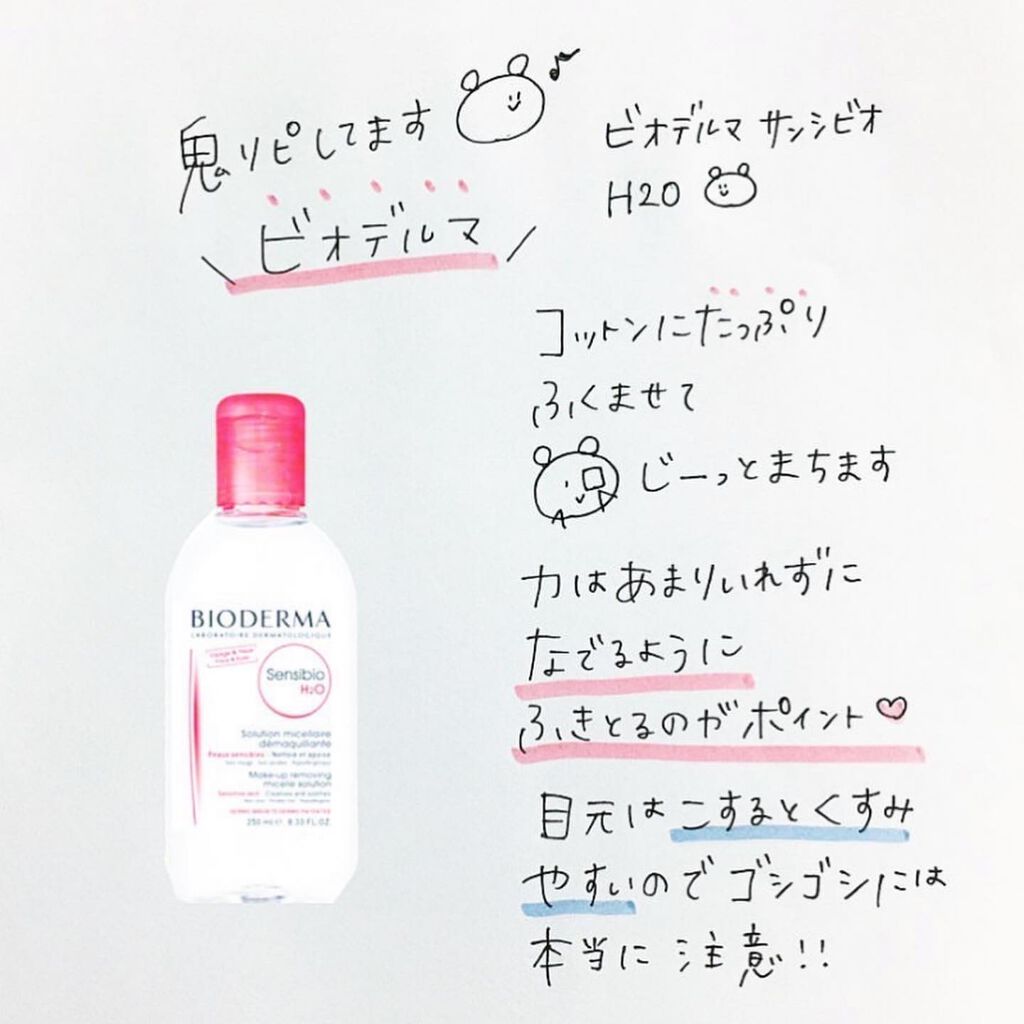 鬼リピしてます
ビオデルマ
ビオデルマ サンシビオ
H2O
コットンにたっぷり
ふくませて
じーっとまちます
力はあまりいれずに
なでるように
ふきとるのがポイント
目元はこするとくすみ
やすいのでゴシゴシには
本当に注意!!
BIODERMA
LABORATOIRE DERMATOLOGIQUE
Visage & Yeux
Face & Eyes
Sensibio
H₂O
Solution micellaire
démaquillante
Peaux sensibles - Nettoie et apaise
Make-up removing
micelle solution
Sensitive skin - Cleanses and soothes
250 ml ℮ 8.33 FL.OZ.